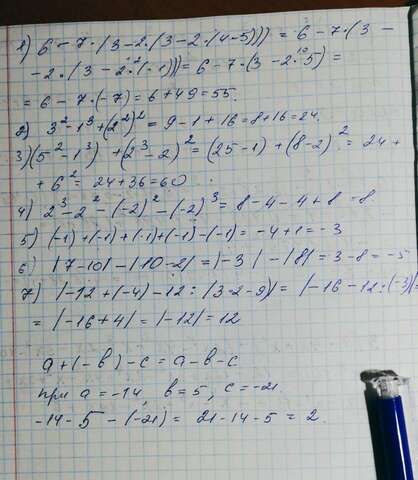 1) 6 - 7·(3-2·(3-2·(4-5))) = 6 - 7·(3 -
- 2·(3 - 2·(-1))) = 6 - 7·(3 - 2·5) =
= 6 - 7·(-7) = 6 + 49 = 55.
2) 3² - 1³ + (2²)² = 9 - 1 + 16 = 8 + 16 = 24.
3) (5² - 1³) + (2³ - 2)² = (25 - 1) + (8 - 2)² = 24 +
+ 6² = 24 + 36 = 60
4) 2³ - 2² - (-2)² - (-2)³ = 8 - 4 - 4 + 8 = 8
5) (-1) + (-1) + (-1) + (-1) - (-1) = -4 + 1 = -3
6) |7 - 10| - |10 - 2| = |-3| - |8| = 3 - 8 = -5
7) |-12 + (-4) - 12 : (3·2 - 9)| = |-16 - 12 : (-3)| =
= |-16 + 4| = |-12| = 12
a + (-b) - c = a - b - c
при a = -14, b = 5, c = -21.
-14 - 5 - (-21) = 21 - 14 - 5 = 2.